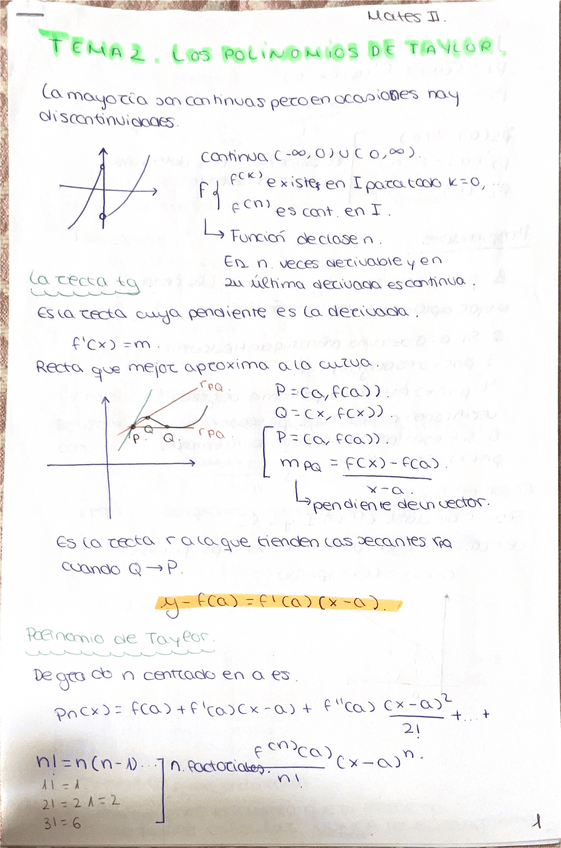 Mates II.
TEMA 2. LOS POLINOMIOS DE TAYLOR.
La mayoría son continuas pero en ocasiones hay
discontinuidades.
continua (-∞, 0) ∪ (0, ∞).
f { f(k) existe, en I para todo k=0, ...
f(n) es cont. en I.
↳ Función de clase n.
Es n. veces derivable y en
su última derivada es continua.
La recta tg
Es la recta cuya pendiente es la derivada.
f'(x) = m.
Recta que mejor aproxima a la curva.
rPQ
P=(a, f(a)).
Q=(x, f(x)).
P. Q Q. rPQ
P=(a, f(a)).
mPQ = f(x) - f(a).
x-a.
↳ pendiente de un vector.
Es la recta r a la que tienden las secantes
cuando Q → P.
y - f(a) = f'(a) (x-a).
Polinomio de Taylor.
De grado n centrado en a es.
Pn(x) = f(a) + f'(a)(x-a) + f''(a) (x-a)²/2! + ... +
f(n)(a)/n! (x-a)ⁿ.
n! = n(n-1)... ] n. factoriales.
1! = 1
2! = 2 1 = 2
3! = 6
1